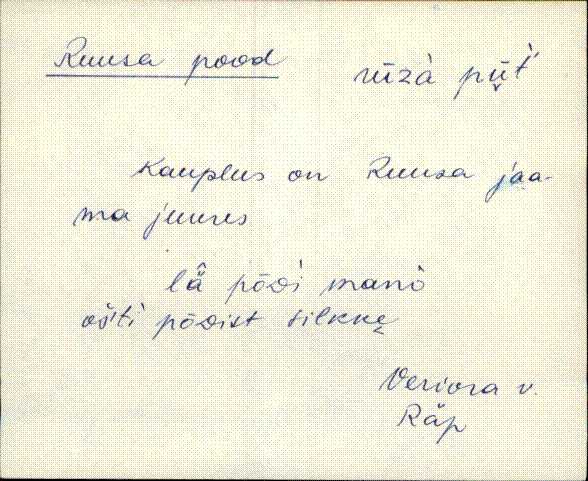 Ruusa pood
rūzà pūt́
Kauplus on Ruusa jaa-
ma juures
lǟ pōdi manò
ošti pōdist silkkę
Veriora v.
Räp